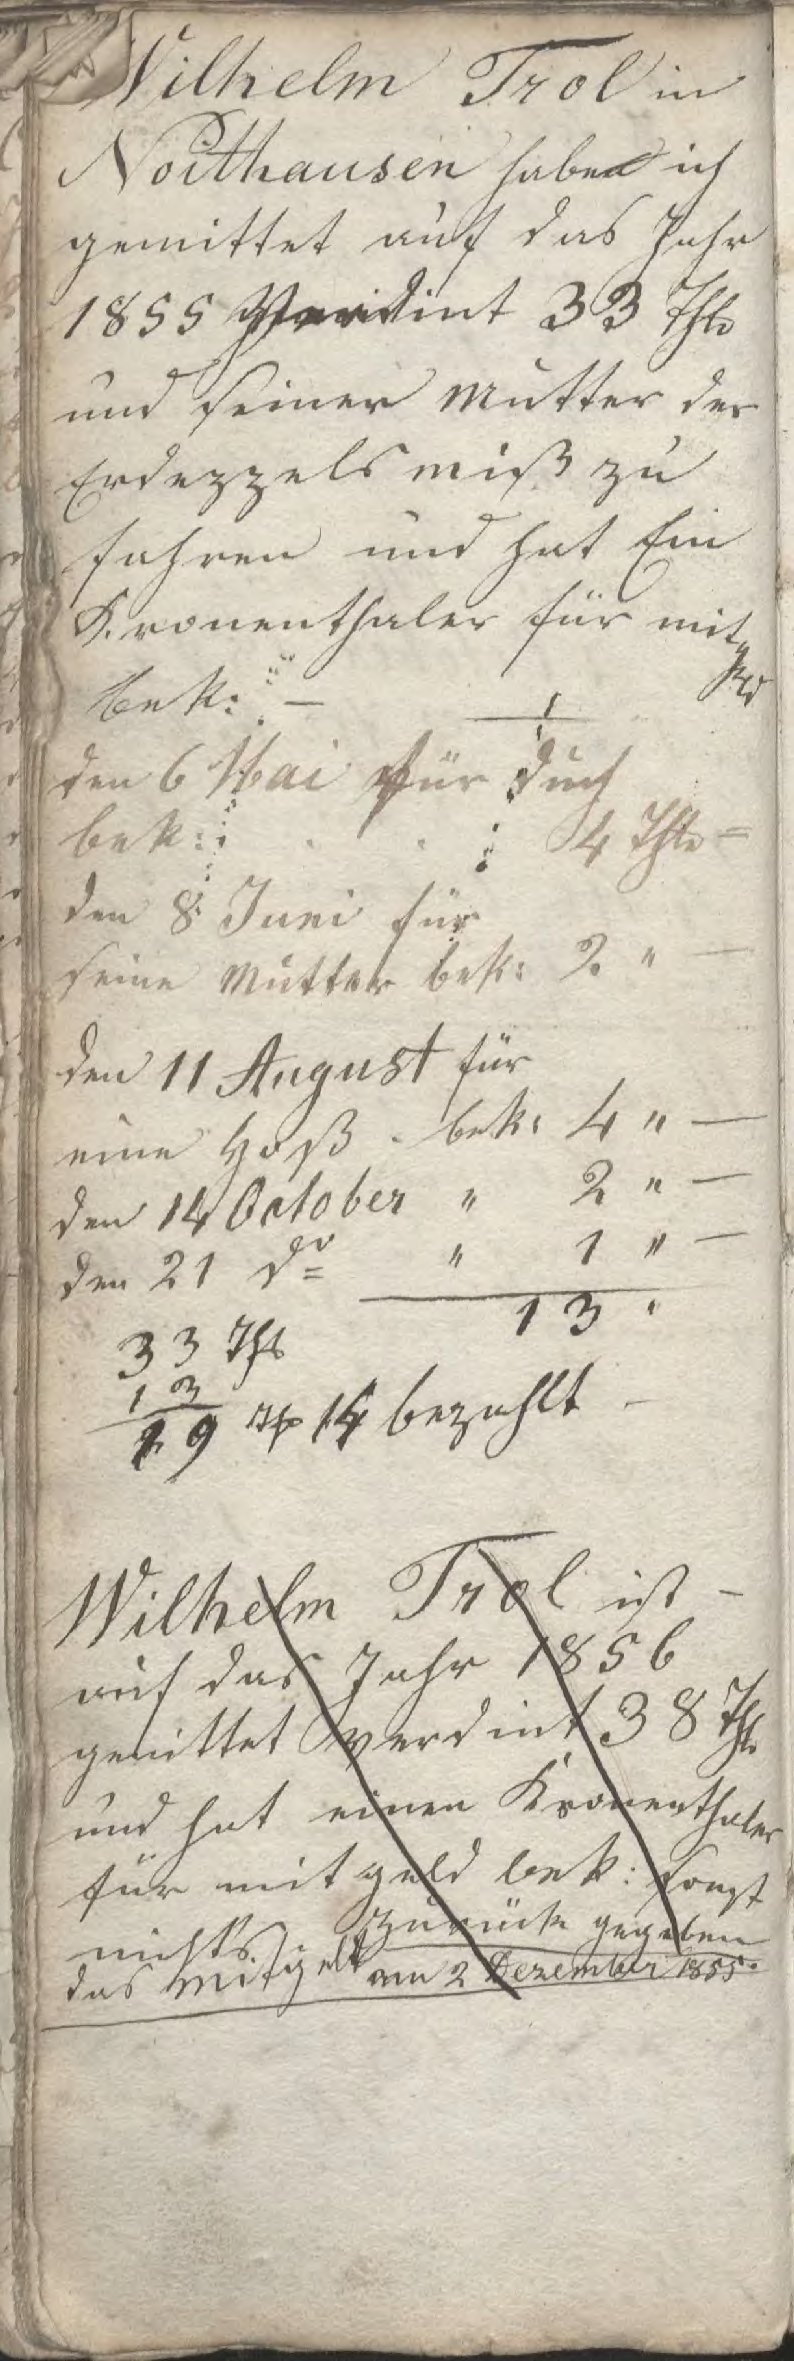 Wilhelm Trol in
Noithausen habe ich
gemittet auf das Jahr
1855 Verdint 33 Thlr
und seiner Mutter der
Erdeppels miß zu
fahren und hat Ein
Kronenthaler für mitgeld
bek: — 1
den 6 Mai für Duch
bek: 4 Thlr =
den 8 Juni für
seine Mutter bek: 2 " —
den 11 August für
eine Hoß bek: 4 " —
den 14 October " 2 " —
den 21 do " 1 " —
13 "
33 Thlr
13
19 Thlr bezahlt —
Wilhelm Trol ist —
auf das Jahr 1856
gemittet verdint 38 Thlr
und hat einen Kronenthaler
für mitgeld bek: sonst
nichts. zurück gegeben
das Mitgeld am 2 Dezember 1855.